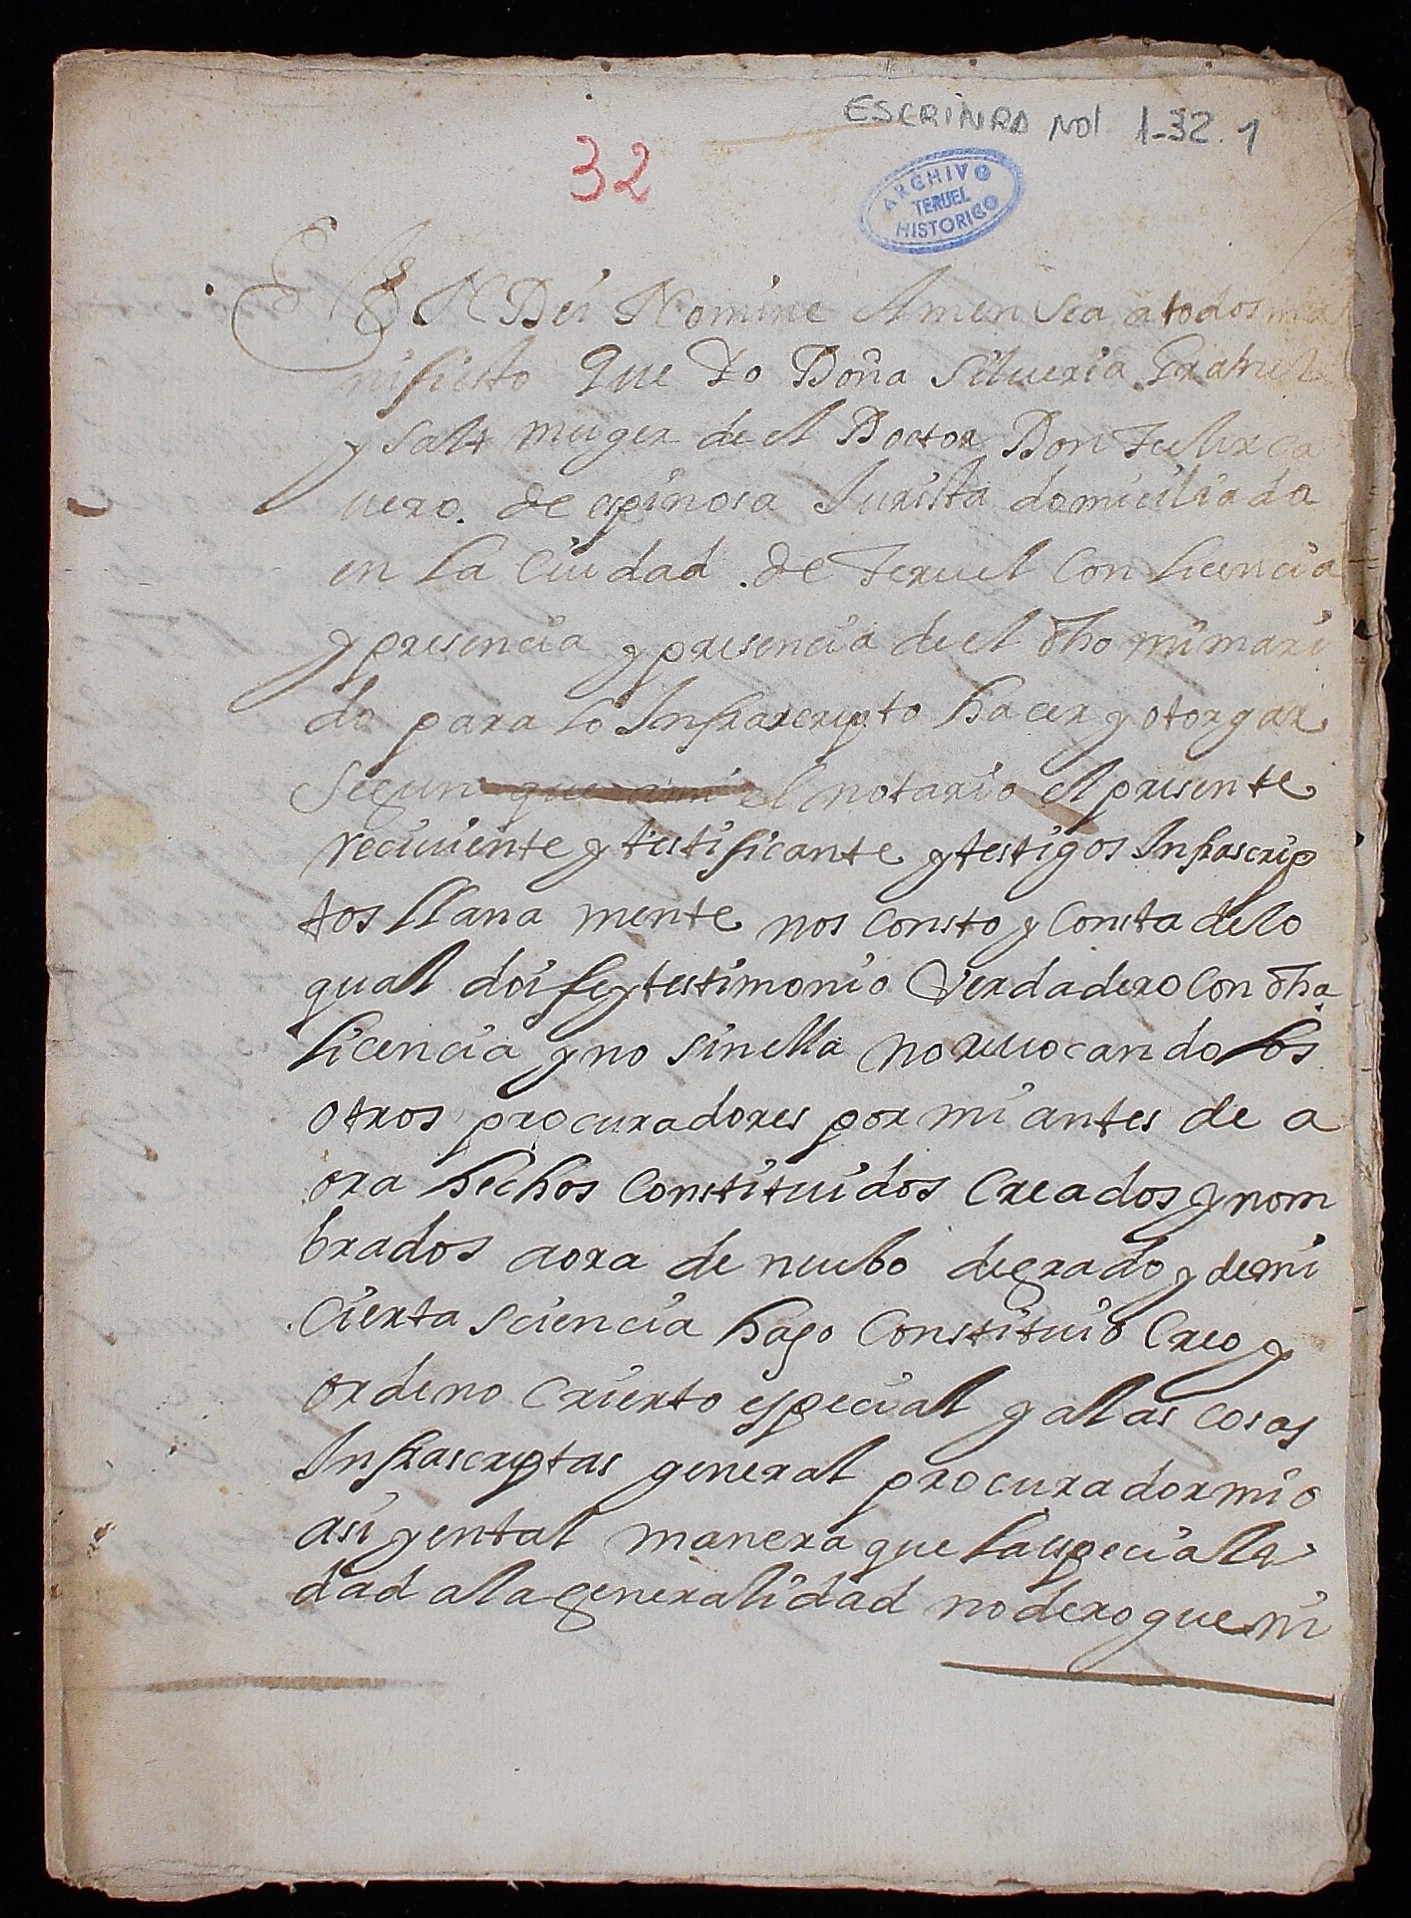 ESCRINRO NOI 1-32.1
32
ARCHIVO
TERUEL
HISTORICO
EN Dei Nomine Amen sea a todos ma
nifiesto Que Yo Doña Silueria
y Salt muger de el Doctor Don Felix ca
uero. de espinosa Jurista domiciliada
en la Ciudad. de Teruel Con licencia
y presencia y presencia de el dho mi mari
do para lo Infrascripto hacer y otorgar
Segun que a mi el notario el presente
reciuiente y testificante y testigos Infrascrip
tos llana mente nos Consto y Consta de lo
qual doi fe y testimonio Verdadero Con dha
licencia y no sin ella no reuocando los
otros procuradores por mi antes de a
ora hechos Constituidos Creados y nom
brados aora de nuebo de grado y de mi
Cierta sciencia hago Constituio Creo y
ordeno Crierto especial y a las cosas
Infrascriptas general procurador mio
asi y en tal manera que la especiali
dad a la generalidad no derogue ni